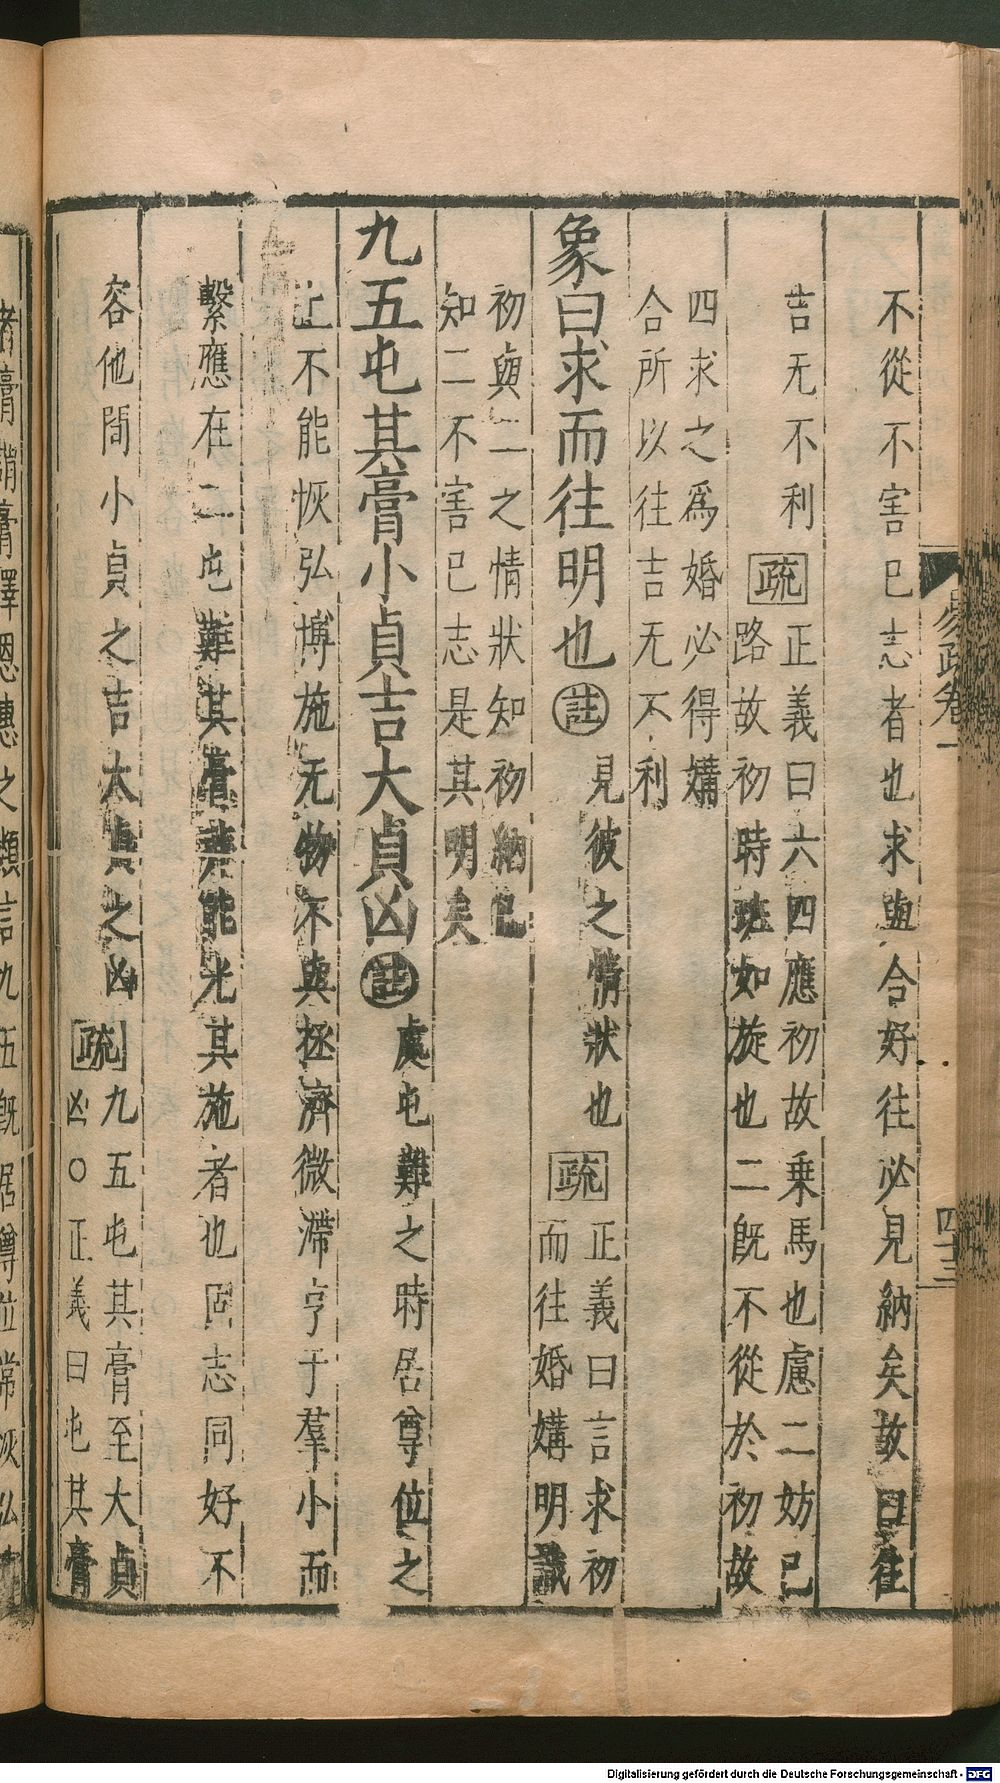 不從不害已志者也求與合好往必見納矣故曰往
吉无不利
疏
正義曰六四應初故乗馬也慮二妨已
路故初時班如旋也二既不從於初故
四求之爲婚必得媾
合所以往吉无不利
象曰求而往明也註見彼之情狀也
疏
正義曰言求初
而往婚媾明識
初與二之情狀知初納已
知二不害已志是其明矣
九五屯其膏小貞吉大貞凶註處屯難之時居尊位之
上不能恢弘博施无物不與拯濟微滯亨于羣小而
繫應在二屯難其膏非能光其施者也固志同好不
容他間小貞之吉大貞之凶
疏
九五屯其膏至大貞
凶○正義曰屯其膏
易疏卷一
四十三
者膏謂膏澤恩惠之類言九五既居尊位當恢弘
Digitalisierung gefördert durch die Deutsche Forschungsgemeinschaft - DFG